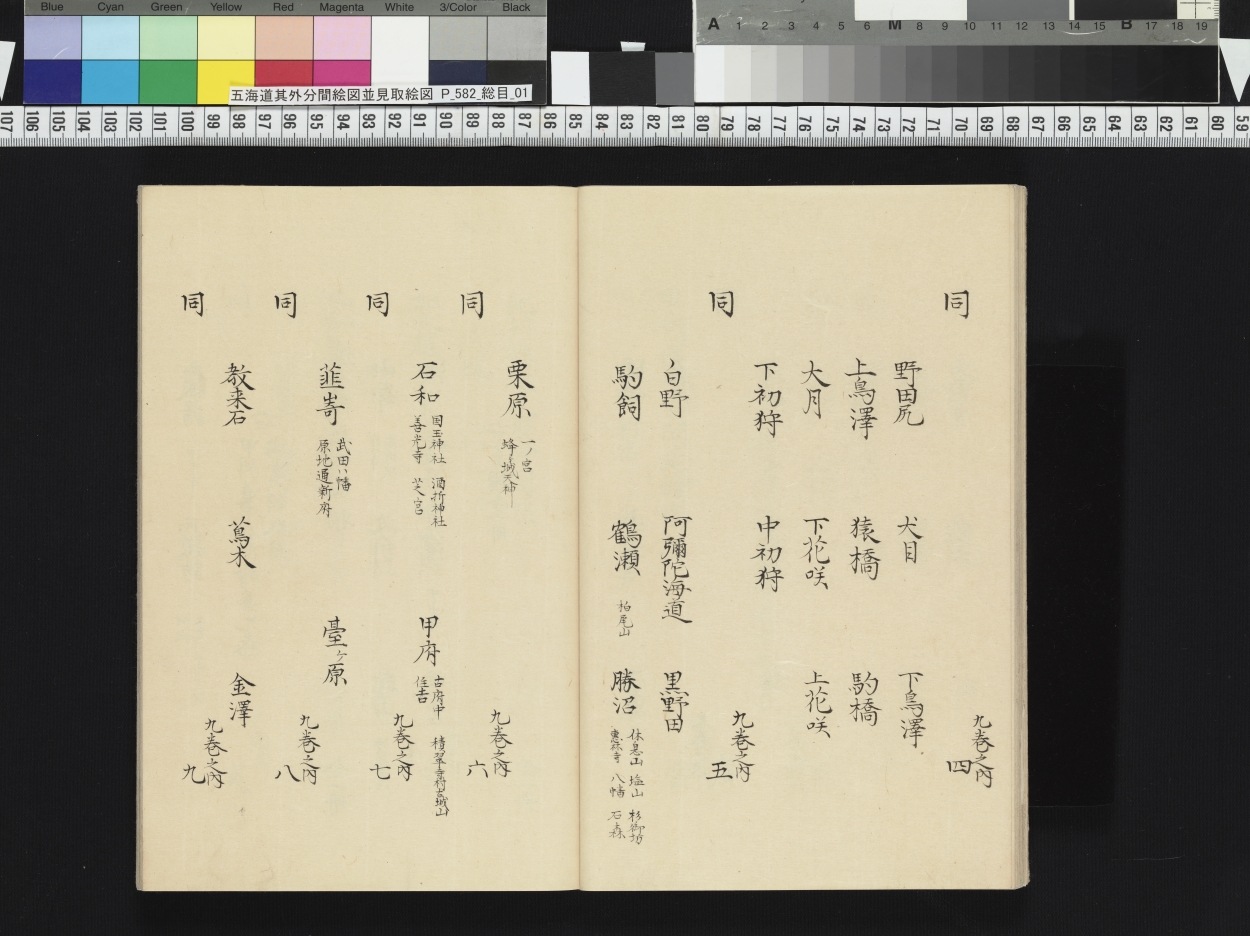 Blue Cyan Green Yellow Red Magenta White 3/Color Black
A 1 2 3 4 5 6 M 8 9 10 11 12 13 14 15 B 17 18 19
五海道其外分間絵図並見取絵図 P_582_総目_01
107 106 105 104 103 102 101 100 99 98 97 96 95 94 93 92 91 90 89 88 87 86 85 84 83 82 81 80 79 78 77 76 75 74 73 72 71 70 69 68 67 66 65 64 63 62 61 60 59
同 九巻之内 四
野田尻 犬目 下鳥澤
上鳥澤 猿橋 駒橋
大月 下花咲 上花咲
下初狩 中初狩
同 九巻之内 五
白野 阿彌陀海道 黒野田
駒飼 鶴瀬 柏尾山 勝沼 休息山 塩山 杉御坊
恵林寺 八幡 石森
栗原 一ノ宮
蜂城天神
同 九巻之内 六
石和 国玉神社 酒折神社
善光寺 芝宮
甲府 古府中 積翠寺村古城山
住吉
同 九巻之内 七
韮嵜 武田八幡
原地通新府
臺ケ原
同 九巻之内 八
教来石 蔦木 金澤
同 九巻之内 九